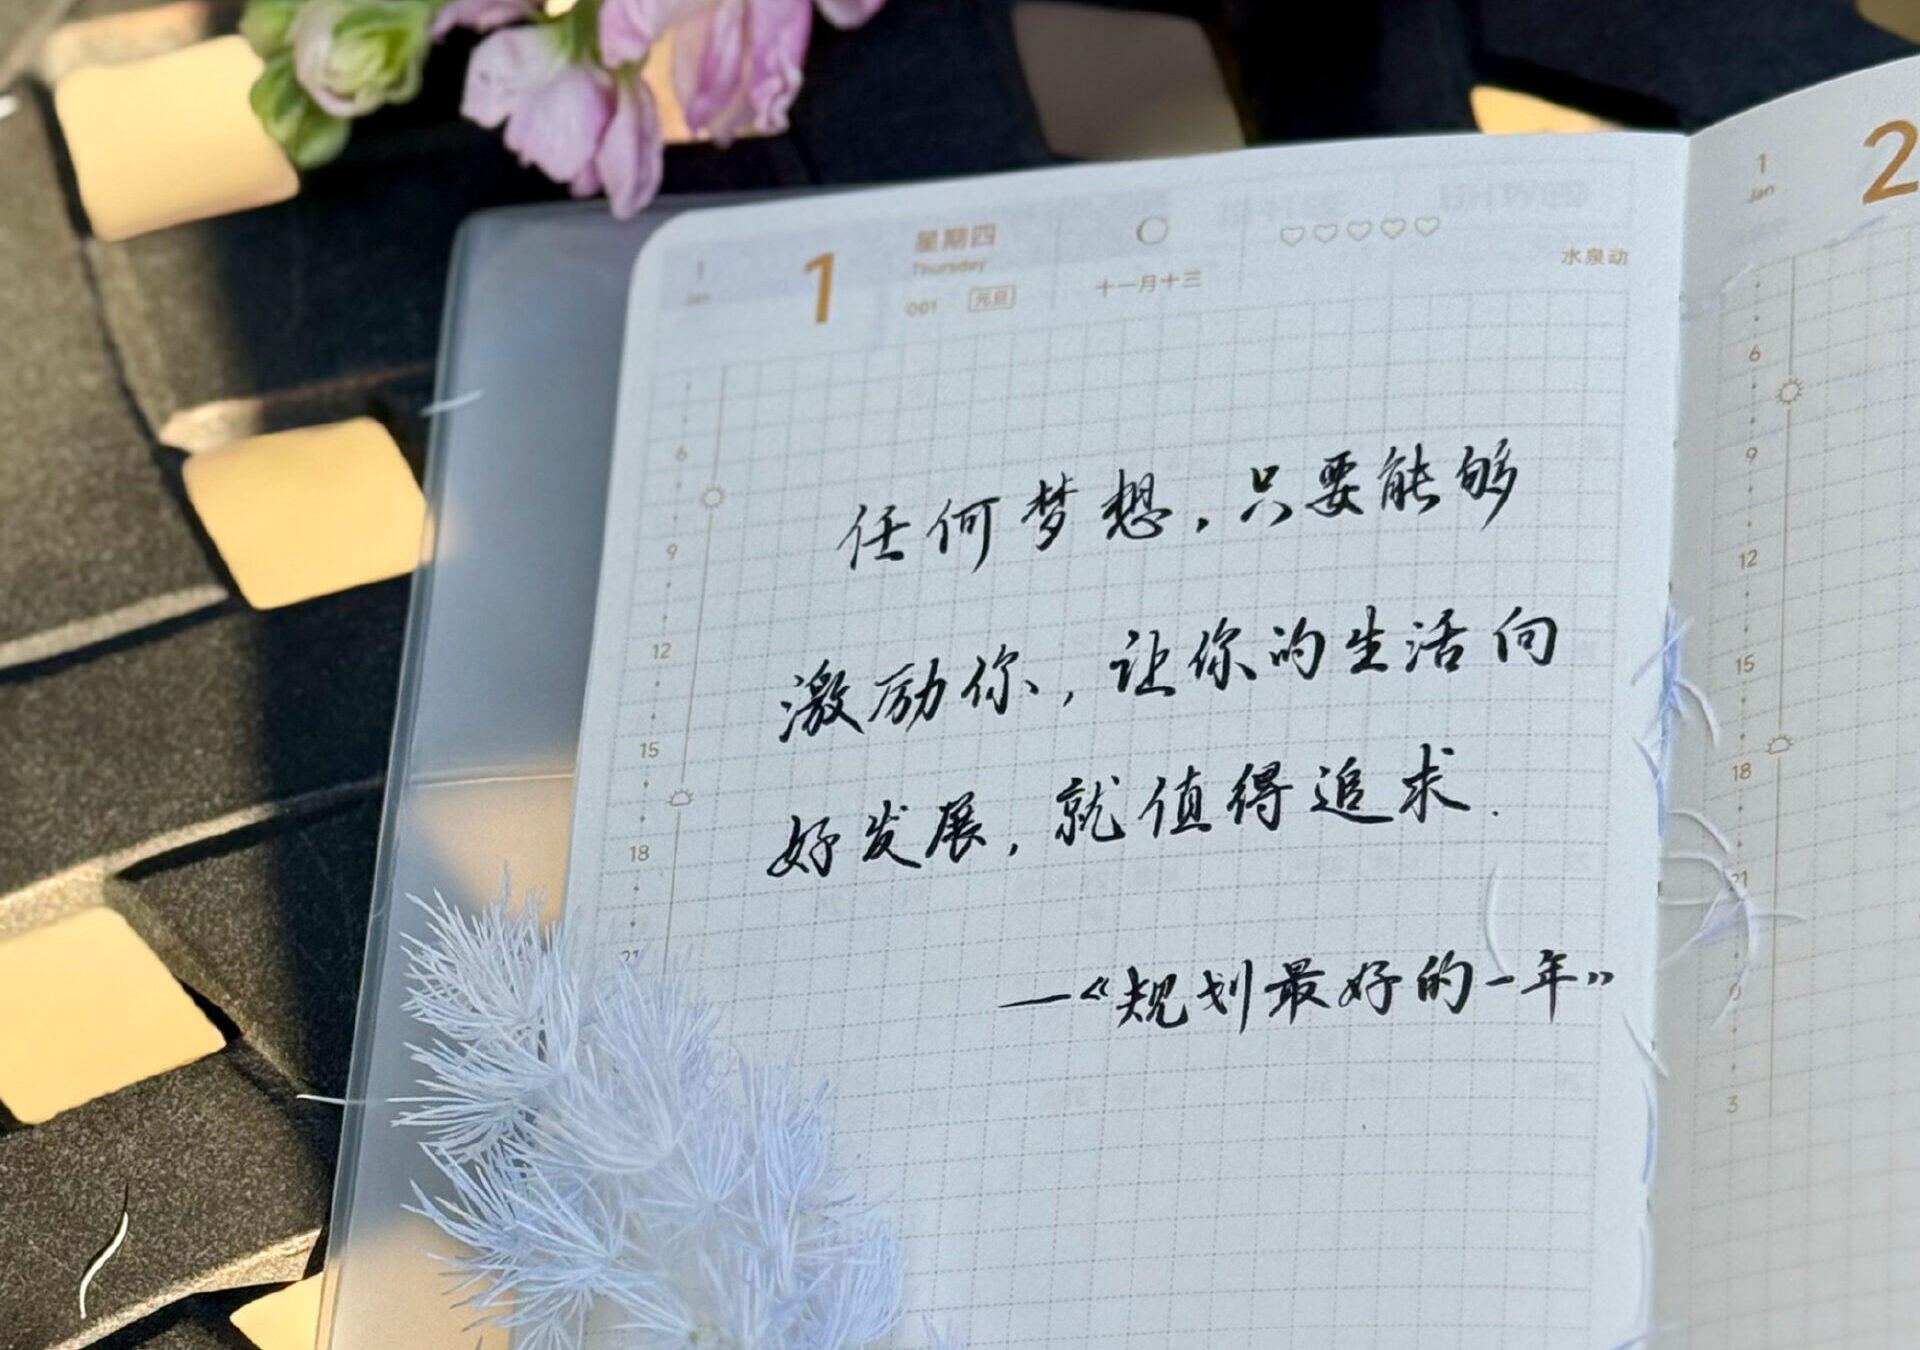 1
Jan
1
星期四
Thursday
001 元旦
十一月十三
水泉动
任何梦想，只要能够
激励你，让你的生活向
好发展，就值得追求.
—《规划最好的一年》
6
9
12
15
18
21
1
Jan
2
6
9
12
15
18
21
0
3